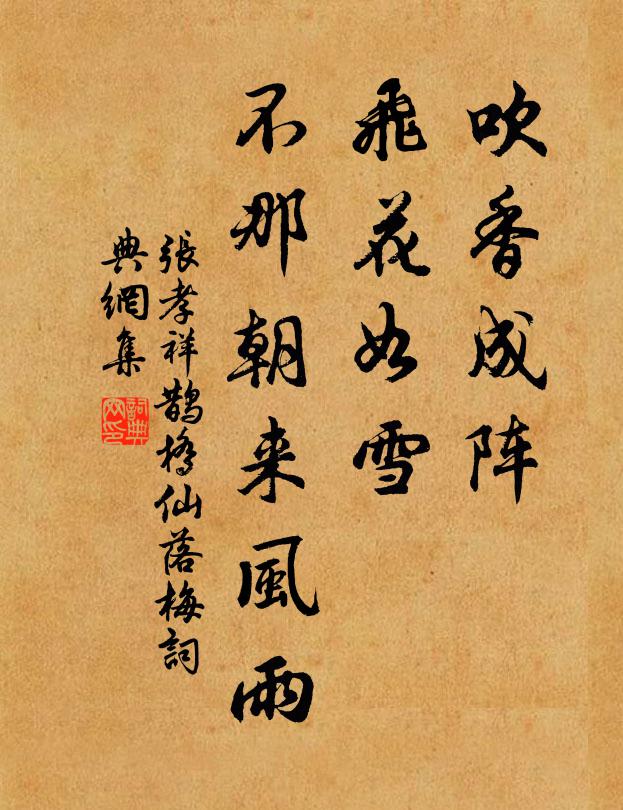 吹香成阵
飛花如雪
不那朝来風雨
張孝祥鵲橋仙落梅詞
典網集
詞典网印